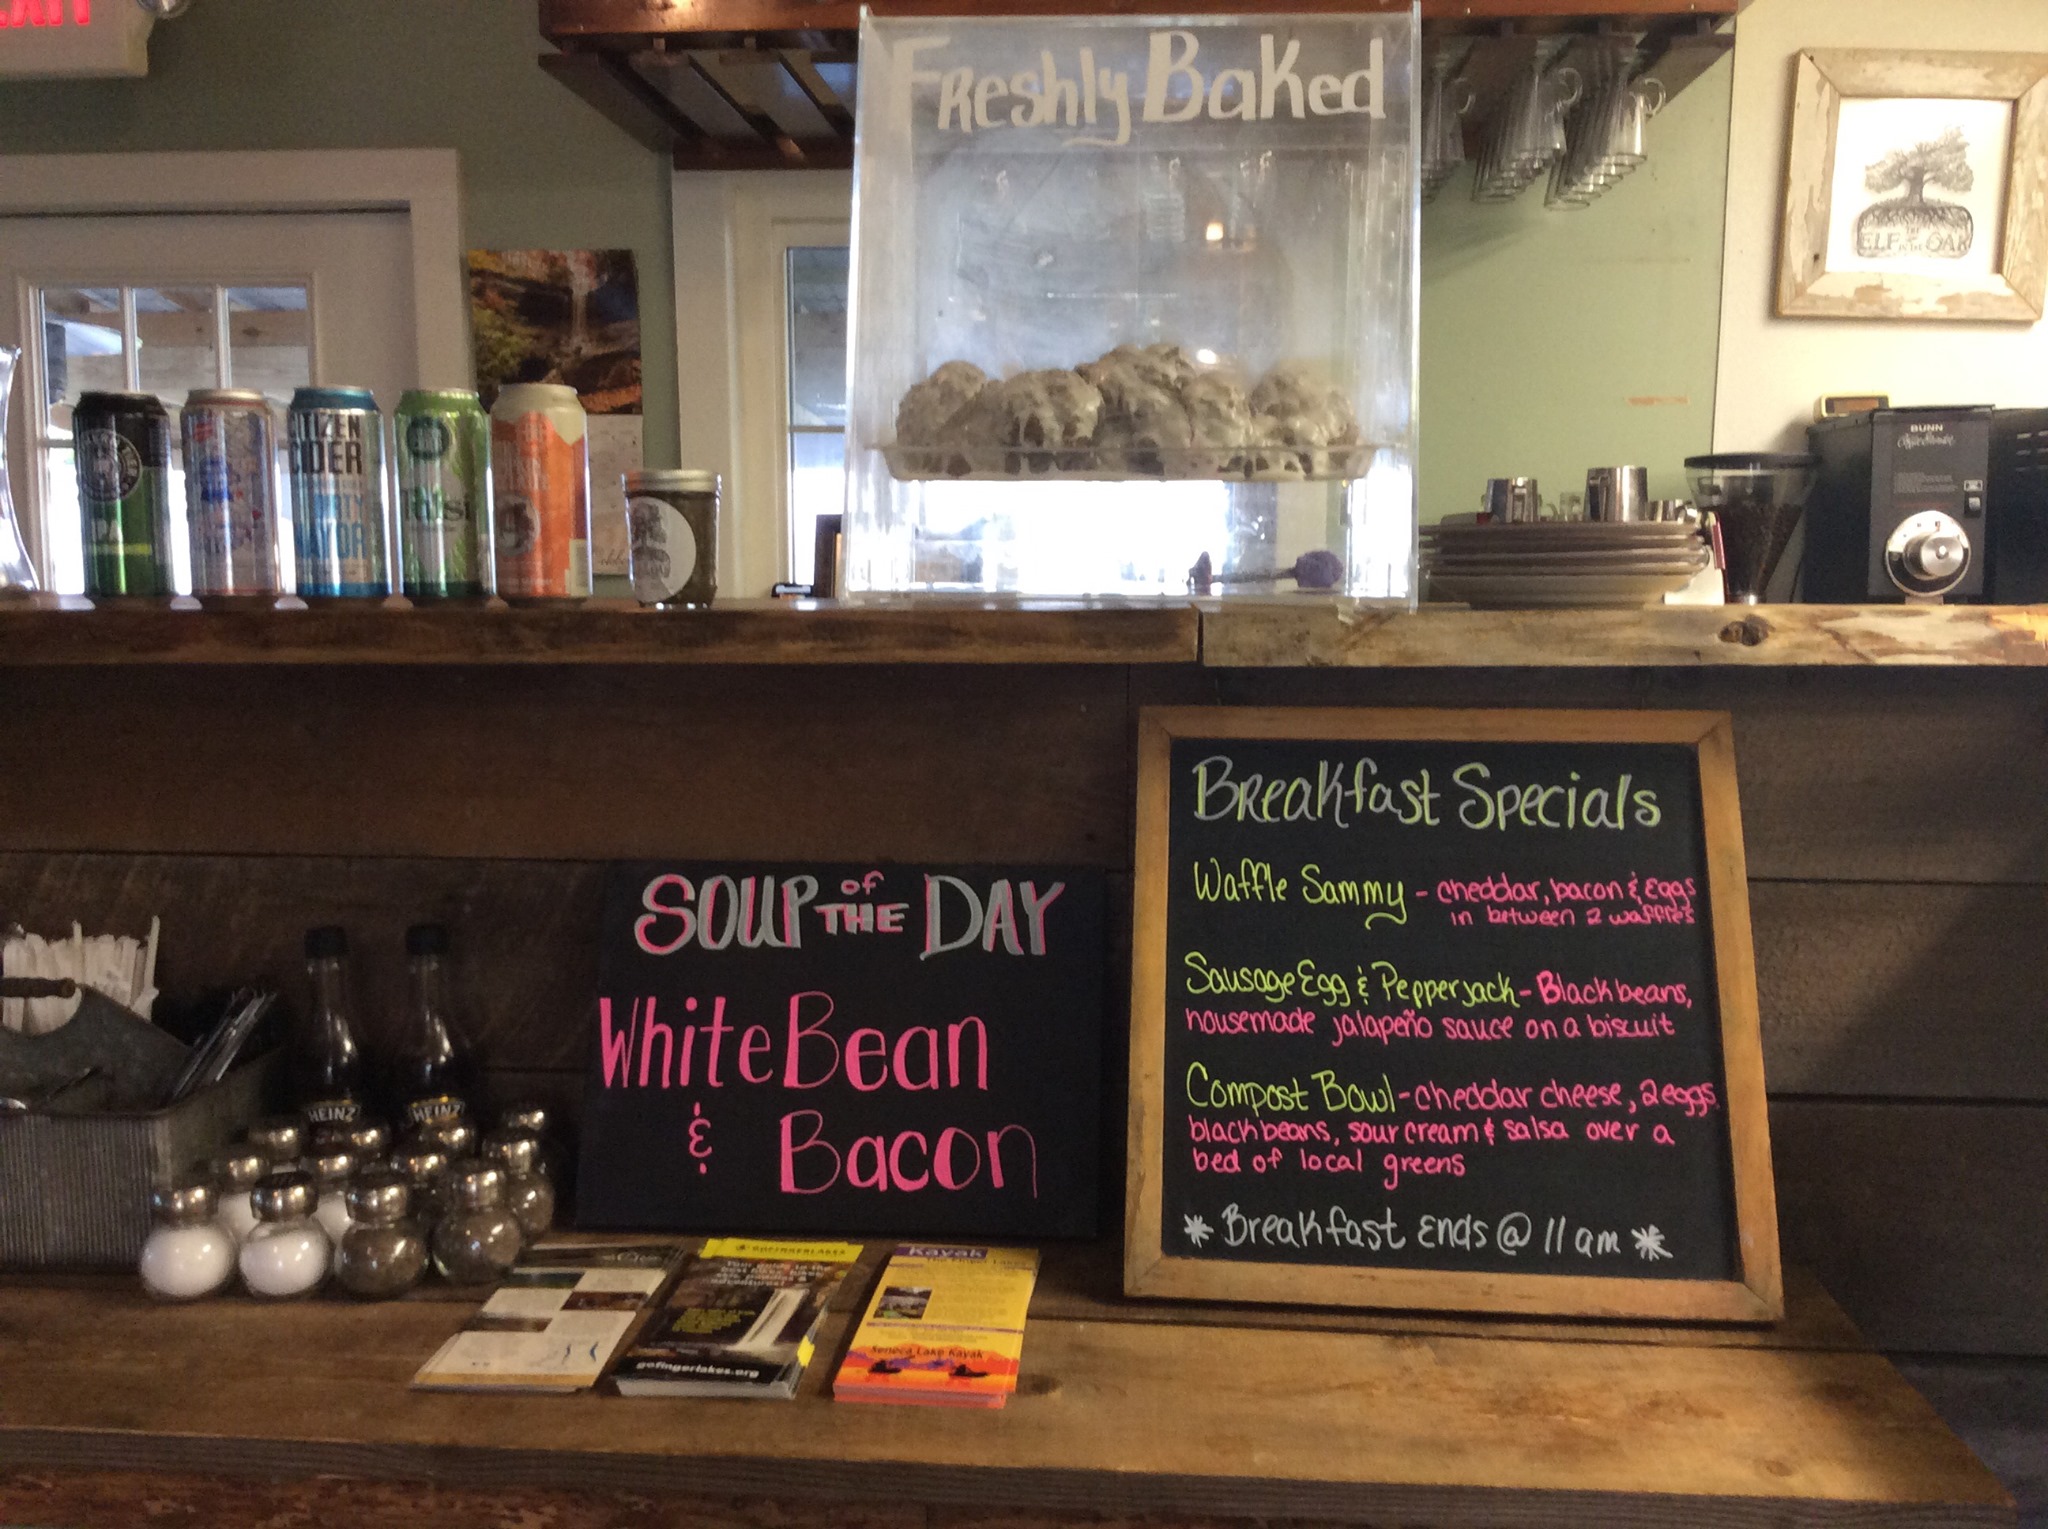 EXIT
Freshly Baked
THE
ELF IN THE OAK
IPA
CITIZEN
CIDER
DIRTY
MAYOR
BUNN
Breakfast Specials
Waffle Sammy - cheddar, bacon & Eggs
in between 2 waffles
Sausage Egg & Pepperjack - Black beans,
housemade jalapeño sauce on a biscuit
Compost Bowl - cheddar cheese, 2 eggs,
black beans, sour cream & salsa over a
bed of local greens
* Breakfast Ends @ 11 am *
SOUP OF THE DAY
White Bean
& Bacon
HEINZ
HEINZ
Your guide to the
gofingerlakes.org
Kayak
Seneca Lake Kayak